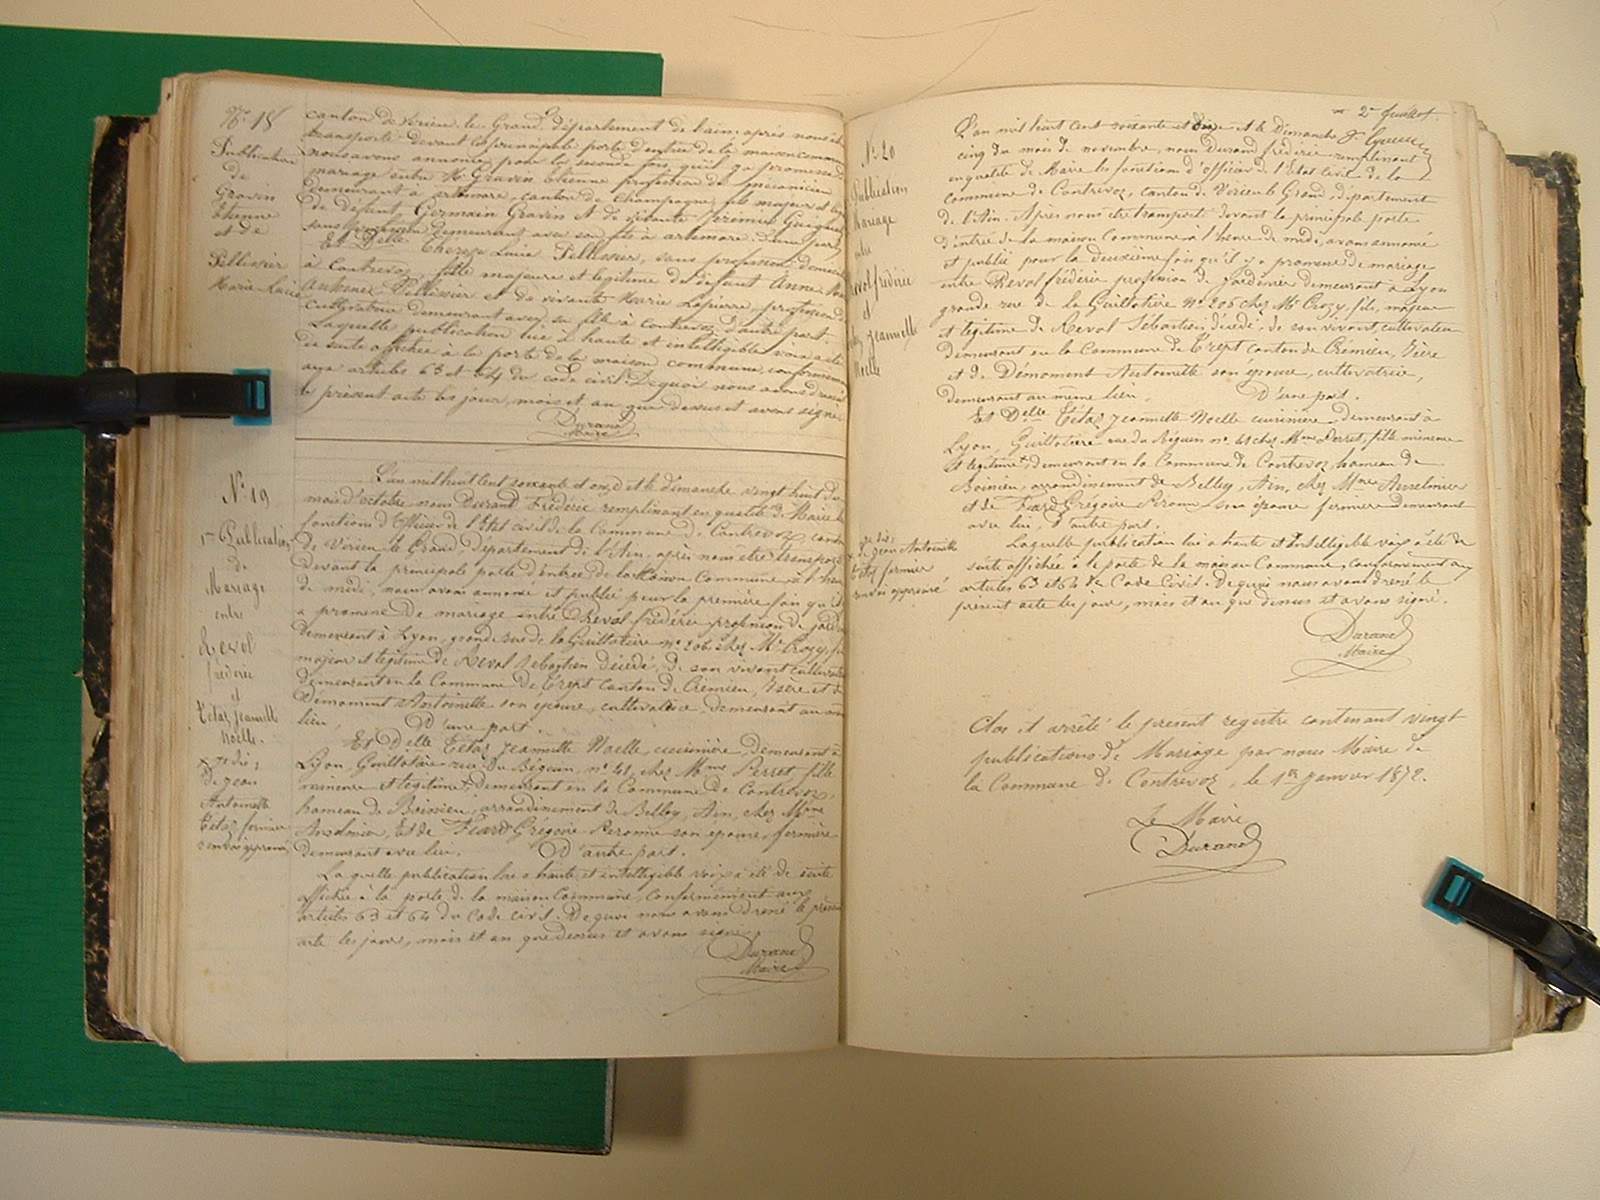 N° 18
Publication
de
Gravin
Etienne
et de
Pellissier
Marie Lucie
canton de Virieu-le-Grand, département de l'ain, après nous être
transporté devant la principale porte d'entrée de la maison commune
nous avons annoncé pour la seconde fois, qu'il y a promesse de
mariage entre Mr Gravin Etienne profession de mécanicien
demeurant à artemare, canton de Champagne, fils majeur et
de défunt Germain Gravin et de
sans profession demeurant avec son fils à artemare d'une part,
Et Delle Thérèse Lucie Pellissier, sans profession, domiciliée
à Contrevoz, fille majeure et légitime de défunt Anne
Anthime Pellissier et de vivante Marie Lapierre, profession de
cultivatrice demeurant avec sa fille à Contrevoz, d'autre part.
Laquelle publication lue à haute et intelligible voix a été
de suite affichée à la porte de la maison commune, conformément
aux articles 63 et 64 du code civil. De quoi nous avons dressé
le présent acte les jour, mois et an que dessus et avons signé.
Durand
Maire
N° 19
1re Publication
de
Mariage
entre
Revol
frédéric
et
Tétaz Jeannette
Noelle.
x je dis;
de Jean
Antoinette
Tétaz fermier
renvoi approuvé
L'an mil huit Cent soixante et onze et le dimanche vingt huit du
mois d'octobre nous Durand Frédéric remplissant en qualité de Maire les
fonctions d'Officier de l'Etat civil de la Commune de Contrevoz, canton
de Virieu le Grand, Département de l'Ain, après nous être transporté
devant la principale porte d'entrée de la Maison Commune à l'heure
de midi, nous avons annoncé et publié pour la première fois qu'il y
a promesse de mariage entre Revol frédéric profession de jardinier
demeurant à Lyon, grande rue de la Guillotière n° 206 chez Mr Crozy, fils
majeur et légitime de Revol Sébastien décédé, de son vivant cultivateur
demeurant en la Commune de Trept canton de Crémieu, Isère et de
Démoment Antoinette son épouse, cultivatrice, demeurant au même
lieu, D'une part.
Et Delle Tétaz Jeannette Noelle, cuisinière, demeurant à
Lyon, Guillotière rue du Béguin, n° 41, chez Mme Perret, fille
mineure et légitime x demeurant en la Commune de Contrevoz,
hameau de Boissieu, arrondissement de Belley, Ain, chez Mme
Anselmier, Et de Féard Grégoire Peronne son épouse, fermière
demeurant avec lui. D'autre part.
La quelle publication lue à haute et intelligible voix a été de suite
affichée à la porte de la maison Commune, conformément aux
articles 63 et 64 du Code civil. De quoi nous avons dressé le présent
acte les jour, mois et an que dessus et avons signé.
Durand
Maire
2e feuillet
N° 20
Publication
Mariage
entre
Revol frédéric
et
Tétaz Jeannette
Noelle
x je dis;
de Jean Antoinette
Tétaz fermier
renvoi approuvé
L'an mil huit cent soixante et onze et le dimanche
cinq du mois de novembre, nous Durand frédéric remplissant
en qualité de Maire les fonctions d'Officier de l'Etat Civil de la
commune de Contrevoz, canton de Virieu le Grand, département
de l'Ain. Après nous être transporté devant la principale porte
d'entrée de la maison Commune à l'heure de midi, avons annoncé
et publié pour la deuxième fois qu'il y a promesse de mariage
entre Revol frédéric profession de jardinier demeurant à Lyon
grande rue de la Guillotière n° 206 chez Mr Crozy, fils, majeur
et légitime de Revol Sébastien décédé, de son vivant, cultivateur
demeurant en la Commune de Trept canton de Crémieu, Isère
et de Démoment Antoinette son épouse, cultivatrice,
demeurant au même lieu, D'une part.
Et Delle Tétaz Jeannette Noelle cuisinière, demeurant à
Lyon, Guillotière rue du Béguin n° 41 chez Mme Perret, fille mineure
et légitime x demeurant en la Commune de Contrevoz, hameau de
Boissieu, arrondissement de Belley, Ain, chez Mme Anselmier
et de Féard Grégoire Peronne son épouse fermière demeurant
avec lui, D'autre part.
Laquelle publication lue à haute et intelligible voix a été de
suite affichée à la porte de la maison Commune, conformément aux
articles 63 et 64 du Code Civil. De quoi nous avons dressé le
présent acte les jour, mois et an que dessus et avons signé.
Durand
Maire
Clos et arrêté le présent registre contenant vingt
publications de Mariage par nous Maire de
la Commune de Contrevoz, le 1er Janvier 1872.
Le Maire
Durand